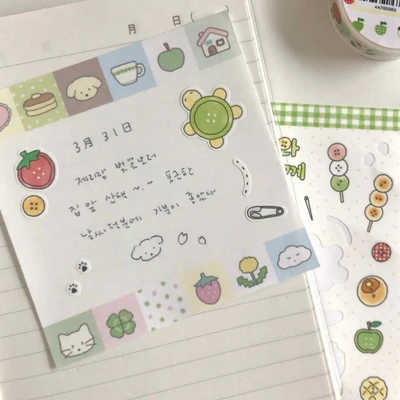 月 日
3月 31日
제리랑 벚꽃보러
집 앞 산책~.~ 포근한
날씨 덕분에 기분이 좋았다
와
께